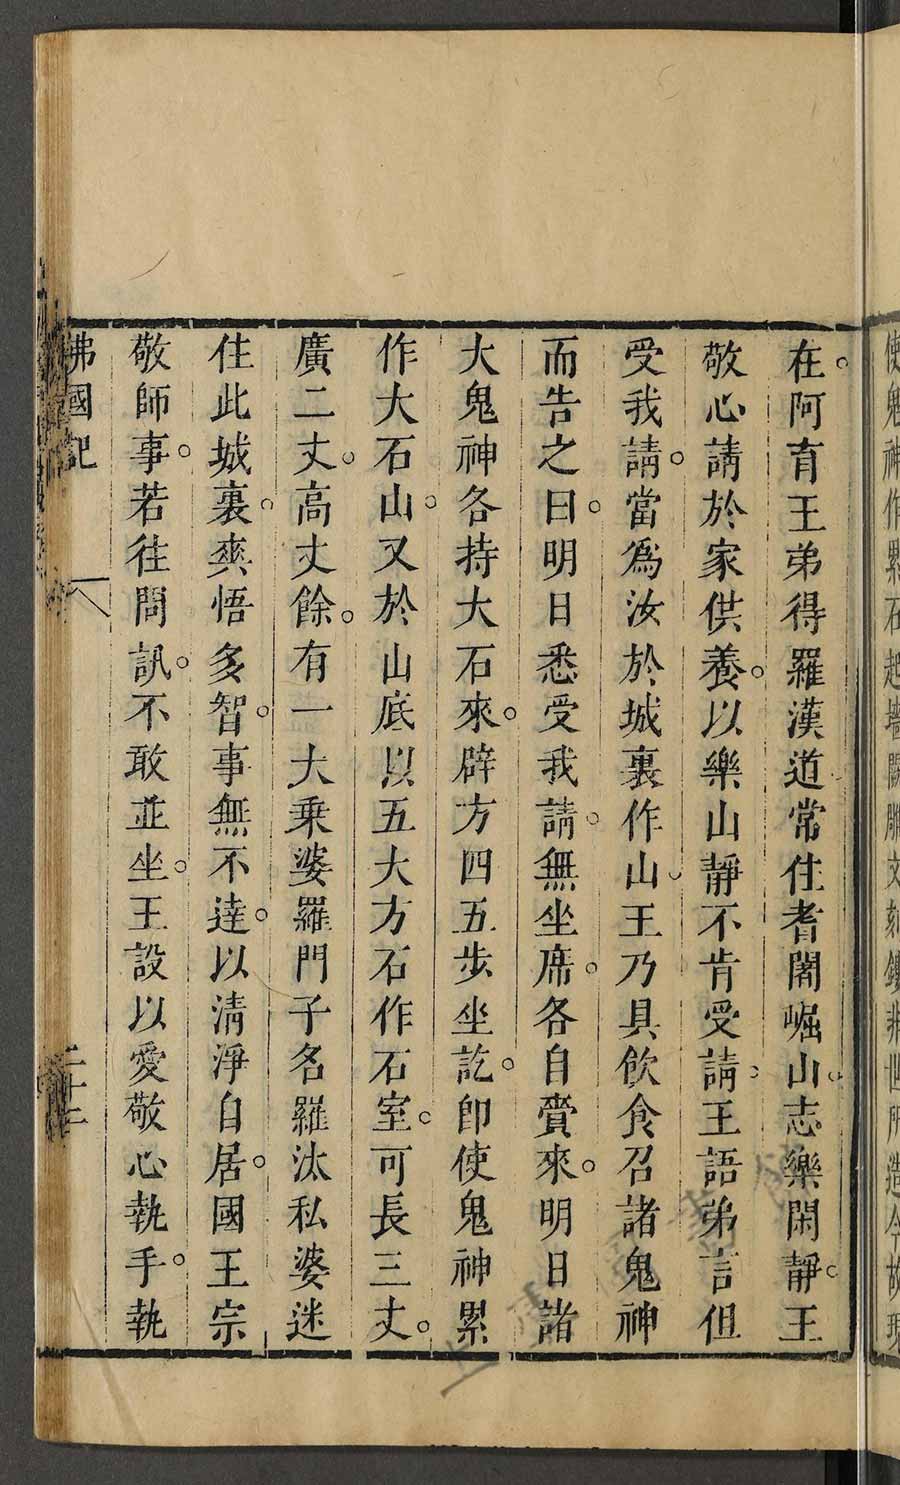 使鬼神作累石起墻闕雕文刻鏤非世所造今故現
在阿育王弟得羅漢道常住耆闍崛山志樂閑靜王
敬心請於家供養以樂山靜不肯受請王語弟言但
受我請當爲汝於城裏作山王乃具飲食召諸鬼神
而告之曰明日悉受我請無坐席各自賫來明日諸
大鬼神各持大石來辟方四五步坐訖即使鬼神累
作大石山又於山底以五大方石作石室可長三丈
廣二丈高丈餘有一大乗婆羅門子名羅汰私婆迷
住此城裏爽悟多智事無不達以清淨自居國王宗
敬師事若往問訊不敢並坐王設以愛敬心執手執
佛國記
二十三